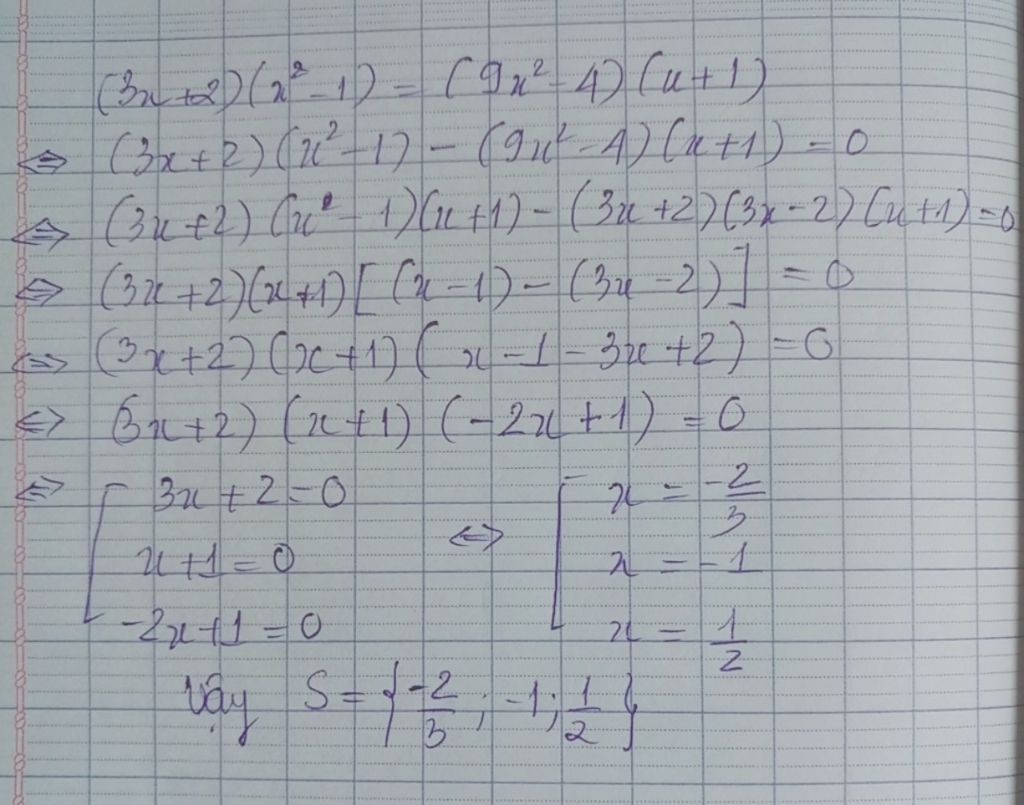 (3x+2)(x²-1) = (9x²-4)(x+1)
⇔ (3x+2)(x²-1) - (9x²-4)(x+1) = 0
⇔ (3x+2)(x²-1)(x+1) - (3x+2)(3x-2)(x+1) = 0
⇔ (3x+2)(x+1)[(x-1) - (3x-2)] = 0
⇔ (3x+2)(x+1)(x-1-3x+2) = 0
⇔ (3x+2)(x+1)(-2x+1) = 0
⇔ [ 3x+2=0 ⇔ [ x = -2/3
x+1=0 x = -1
-2x+1=0 x = 1/2
Vậy S = {-2/3; -1; 1/2}